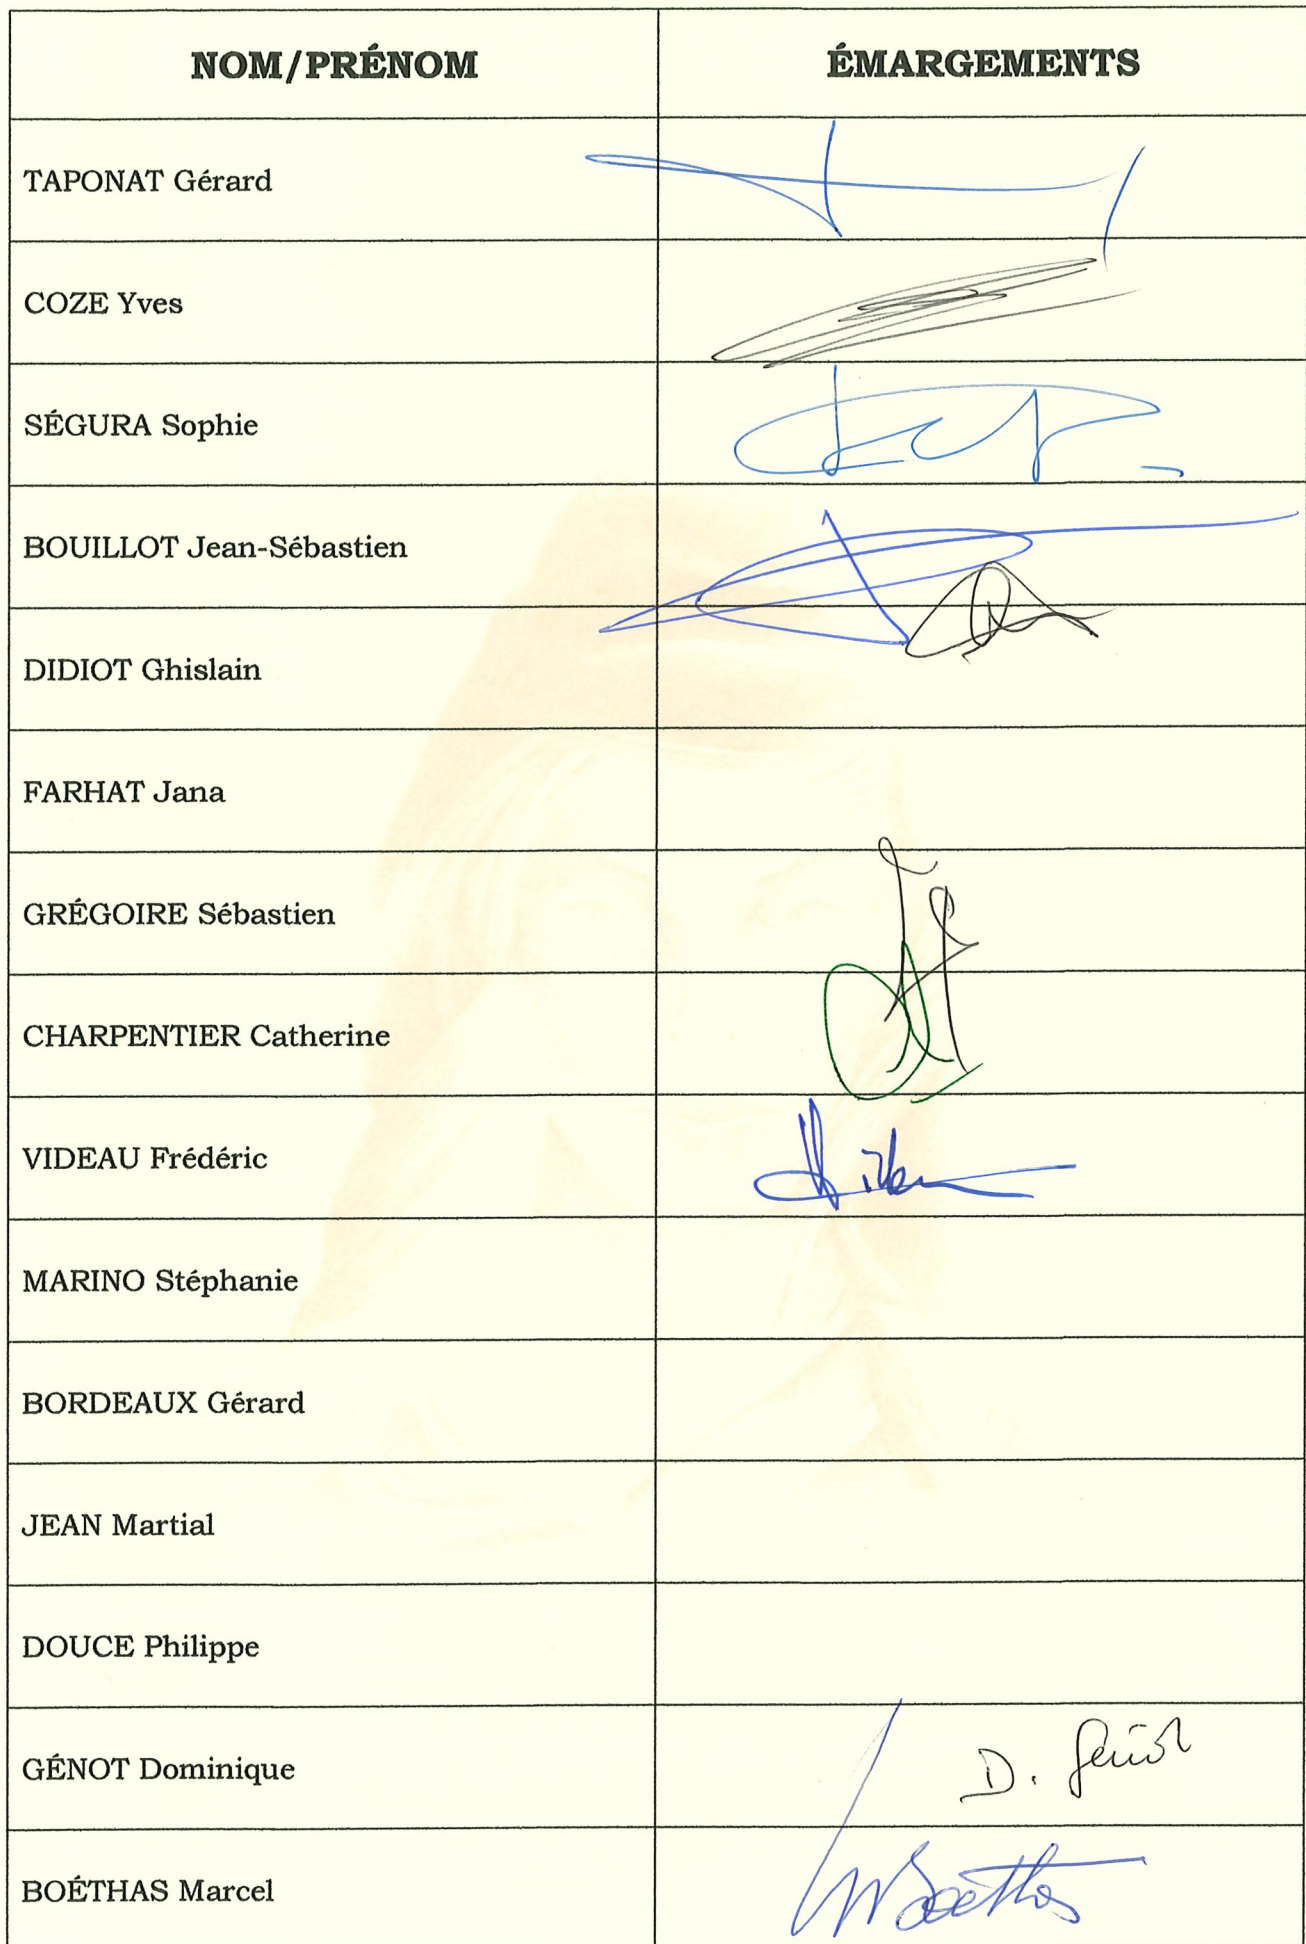 NOM/PRÉNOM ÉMARGEMENTS
TAPONAT Gérard
COZE Yves
SÉGURA Sophie
BOUILLOT Jean-Sébastien
DIDIOT Ghislain
FARHAT Jana
GRÉGOIRE Sébastien
CHARPENTIER Catherine
VIDEAU Frédéric
MARINO Stéphanie
BORDEAUX Gérard
JEAN Martial
DOUCE Philippe
GÉNOT Dominique D. Génot
BOÉTHAS Marcel Boéthas